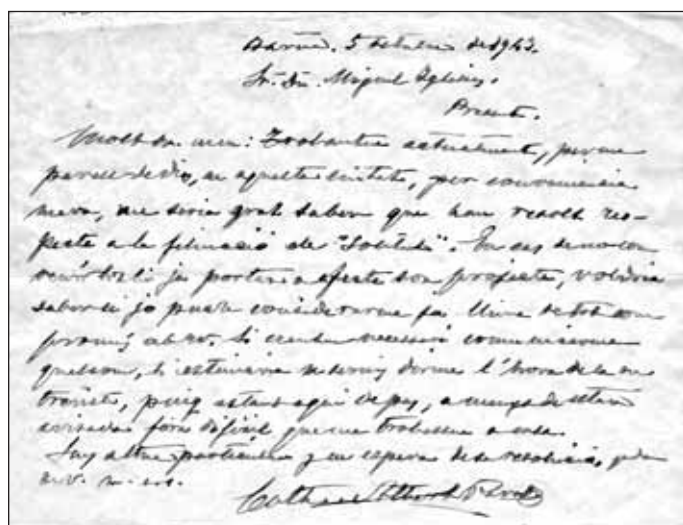 5 de 1943.
Sr. Dn. Miquel Iglesias.
Present.
Molt Sr. meu: Trobantme actualment, per un
parell de dies, en aquesta ciutat, per conveniencia
meva, me seria grat saber que han resolt res-
pecte a la filmació de "Solitud". En cas de no con
li ja portar a efecte son projecte, voldria
saber si jo puch considerarme ja lliure de tot com
promís ab Si necessari comunicarme
quelcom, li estimaria se servís dirme l'hora de la en
trevista, puig estant aquí de pas, a menys d'estar
avisada fora difícil que me trobessin a casa.
Sens altre particular y en espera de sa resolució, queda
de v. m.